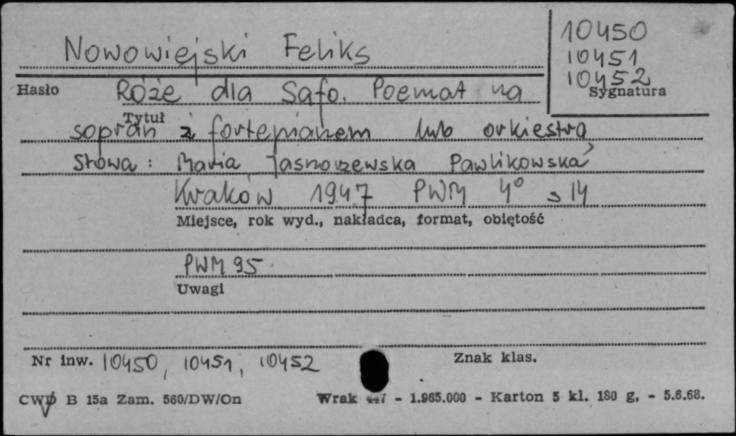 Nowowiejski Feliks
10450
10451
10452
Hasło
Sygnatura
Róże dla Safo. Poemat na
Tytuł
sopran z fortepianem lub orkiestrą
Słowa: Maria Jasnorzewska Pawlikowska
Kraków 1947 PWM 4° s 14
Miejsce, rok wyd., nakładca, format, objętość
PWM 95
Uwagi
Nr inw. 10450, 10451, 10452
Znak klas.
CWD B 15a Zam. 560/DW/On
Wrak 447 - 1.965.000 - Karton 5 kl. 180 g, - 5.6.68.